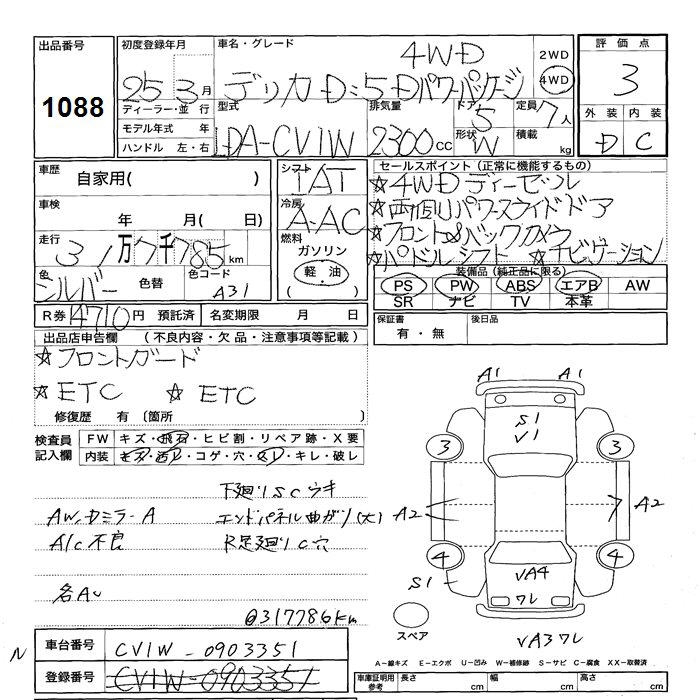 出品番号
1088
初度登録年月
25 3月
ディーラー・並行
モデル年式 年
ハンドル 左・右
車名・グレード
4WD
デリカ D:5 Dパワーパッケージ
2WD
4WD
型式
LDA-CV1W
排気量
2300cc
ドア
5
形状
W
定員
7人
積載
kg
評価点
3
外装 内装
D C
車歴
自家用( )
車検
年 月( 日)
走行
31万7千785km
色
シルバー
色替
色コード
A31
シフト
IAT
冷房
A-AC
燃料
ガソリン
軽・油
セールスポイント(正常に機能するもの)
☆4WD ディーゼル
☆両側パワースライドドア
☆フロント&バックカメラ
☆パドルシフト ☆ナビゲーション
装備品(純正品に限る)
PS PW ABS エアB AW
SR ナビ TV 本革
R券 14710円 預託済 名変期限 月 日
保証書
有・無
後日品
出品店申告欄 (不良内容・欠品・注意事項等記載)
☆フロントガード
☆ETC ☆ETC
修復歴 有 (箇所 )
検査員
記入欄
FW キズ・飛石・ヒビ割・リペア跡・X要
内装 キズ・汚レ・コゲ・穴・スレ・キレ・破レ
下廻りSCウキ
AW、カミラーA エンドパネル曲がり(大)
A/C不良 R足廻りC穴
各A〜
@317786km
A1 A1
S1
V1
3 3
A2 A2
4 4
S1
VA4
ワレ
スペア
VA3ワレ
N
車台番号
CV1W-0903351
登録番号
CV1W-0903351
A−線キズ E−エクボ U−凹み W−補修跡 S−サビ C−腐食 XX−取替済
車庫証明用
参考
長さ cm 幅 cm 高さ cm